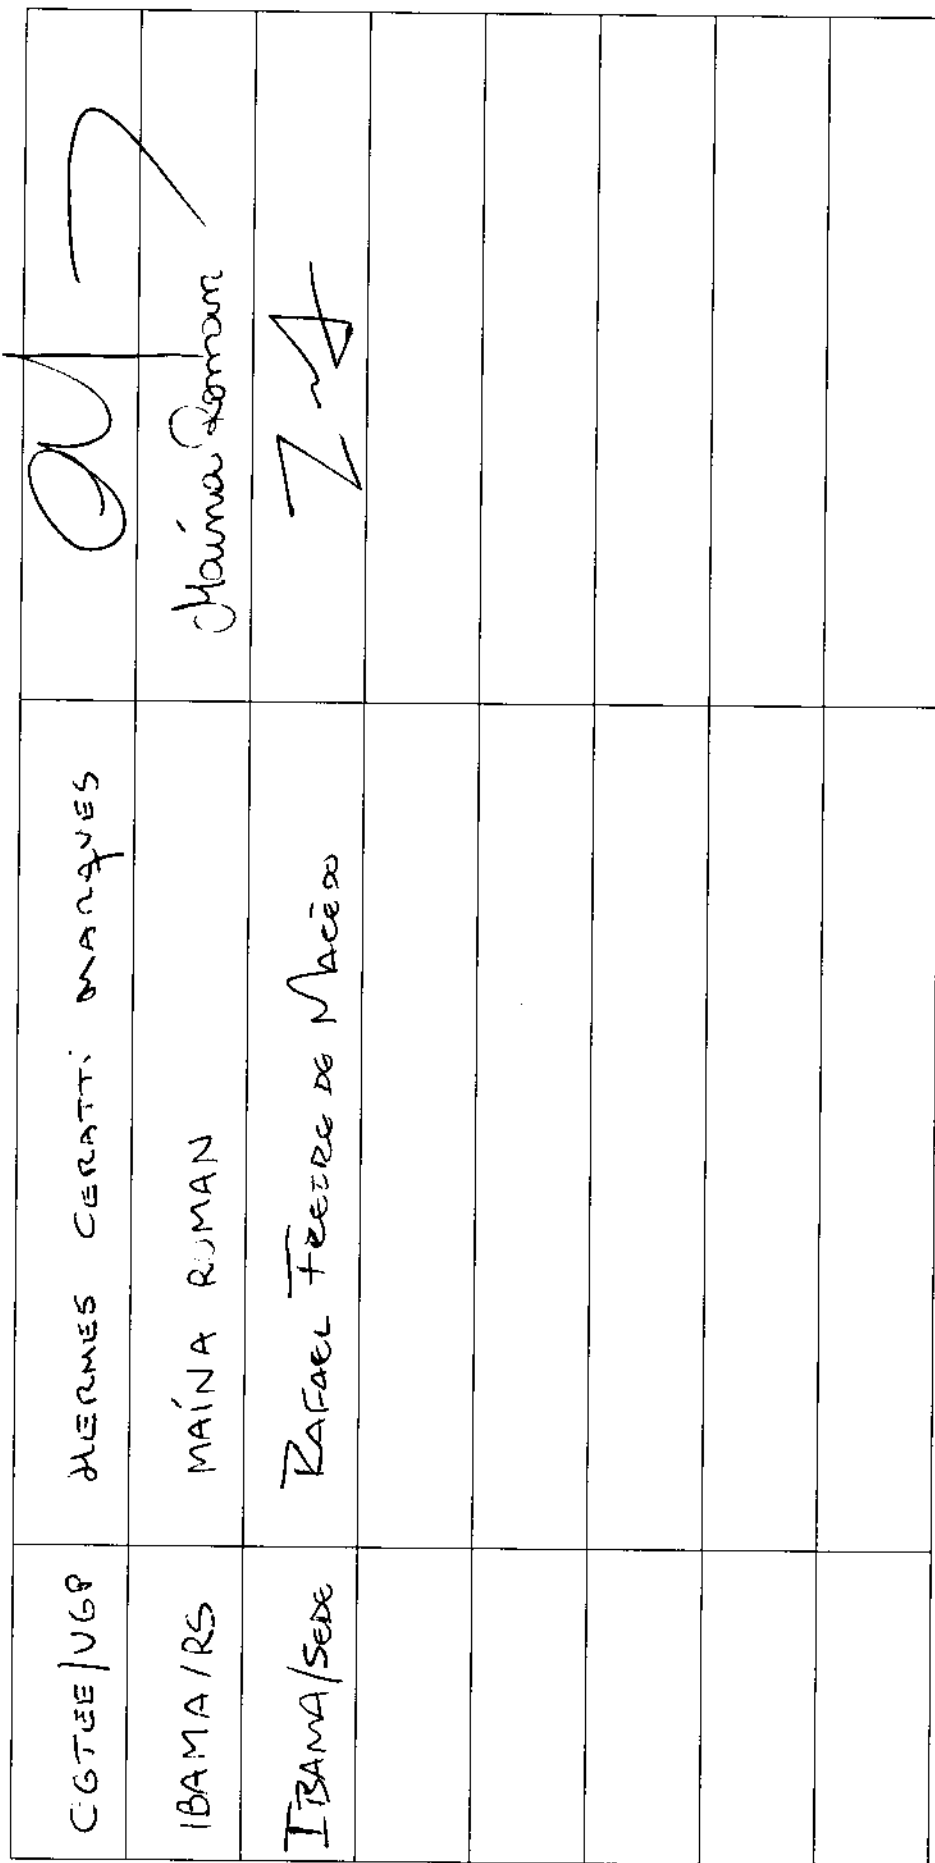 CGTEE/UGP HERMES CERATTI MARQUES
IBAMA/RS MAÍNA ROMAN Maína Roman
IBAMA/SEDE RAFAEL FREIRE DE MACÊDO